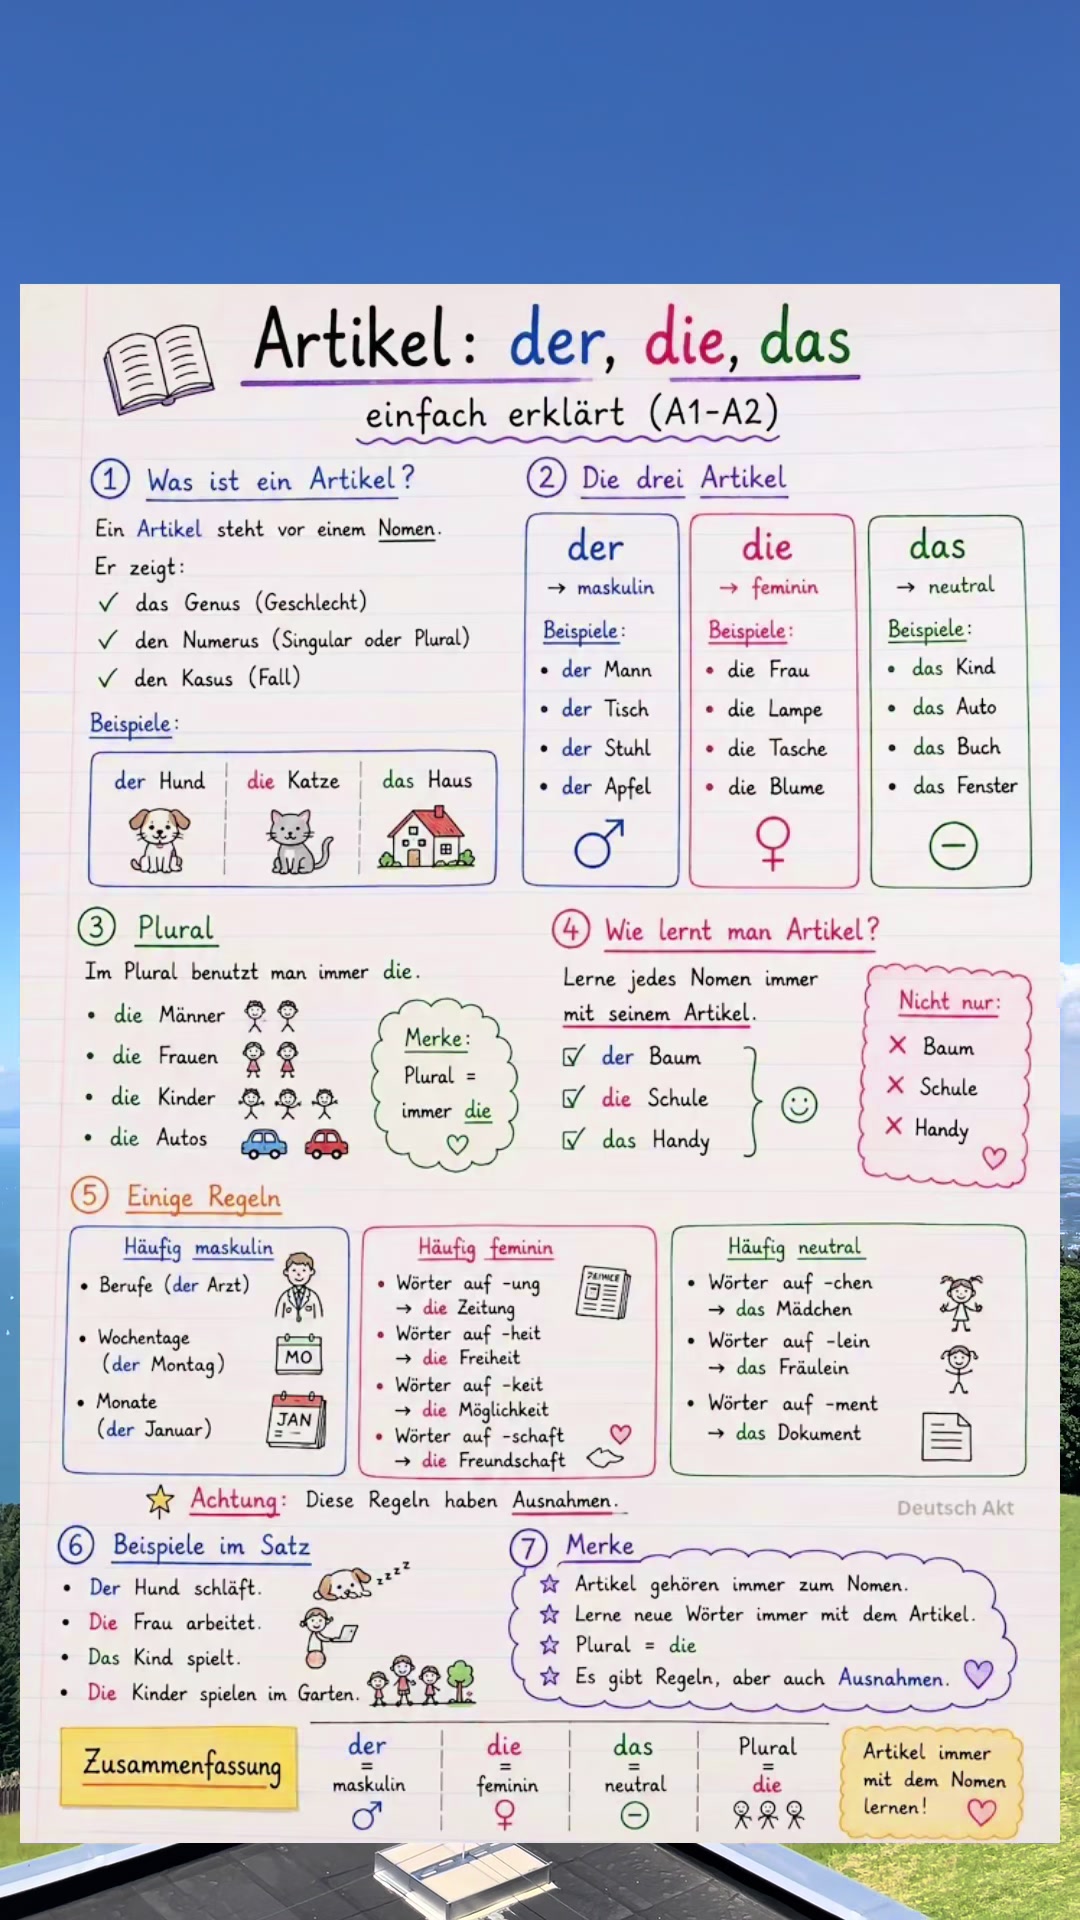 Artikel: der, die, das
einfach erklärt (A1-A2)
1 Was ist ein Artikel?
Ein Artikel steht vor einem Nomen.
Er zeigt:
✓ das Genus (Geschlecht)
✓ den Numerus (Singular oder Plural)
✓ den Kasus (Fall)
Beispiele:
der Hund
die Katze
das Haus
2 Die drei Artikel
der
→ maskulin
Beispiele:
• der Mann
• der Tisch
• der Stuhl
• der Apfel
die
→ feminin
Beispiele:
• die Frau
• die Lampe
• die Tasche
• die Blume
das
→ neutral
Beispiele:
• das Kind
• das Auto
• das Buch
• das Fenster
3 Plural
Im Plural benutzt man immer die.
• die Männer
• die Frauen
• die Kinder
• die Autos
Merke:
Plural =
immer die
4 Wie lernt man Artikel?
Lerne jedes Nomen immer
mit seinem Artikel.
der Baum
die Schule
das Handy
Nicht nur:
✗ Baum
✗ Schule
✗ Handy
5 Einige Regeln
Häufig maskulin
• Berufe (der Arzt)
• Wochentage
(der Montag)
MO
• Monate
(der Januar)
JAN
Häufig feminin
• Wörter auf -ung
→ die Zeitung
• Wörter auf -heit
→ die Freiheit
• Wörter auf -keit
→ die Möglichkeit
• Wörter auf -schaft
→ die Freundschaft
Häufig neutral
• Wörter auf -chen
→ das Mädchen
• Wörter auf -lein
→ das Fräulein
• Wörter auf -ment
→ das Dokument
Achtung: Diese Regeln haben Ausnahmen.
Deutsch Akt
6 Beispiele im Satz
• Der Hund schläft.
zzzz
• Die Frau arbeitet.
• Das Kind spielt.
• Die Kinder spielen im Garten.
7 Merke
☆ Artikel gehören immer zum Nomen.
☆ Lerne neue Wörter immer mit dem Artikel.
☆ Plural = die
☆ Es gibt Regeln, aber auch Ausnahmen.
Zusammenfassung
der
=
maskulin
die
=
feminin
das
=
neutral
Plural
=
die
Artikel immer
mit dem Nomen
lernen!